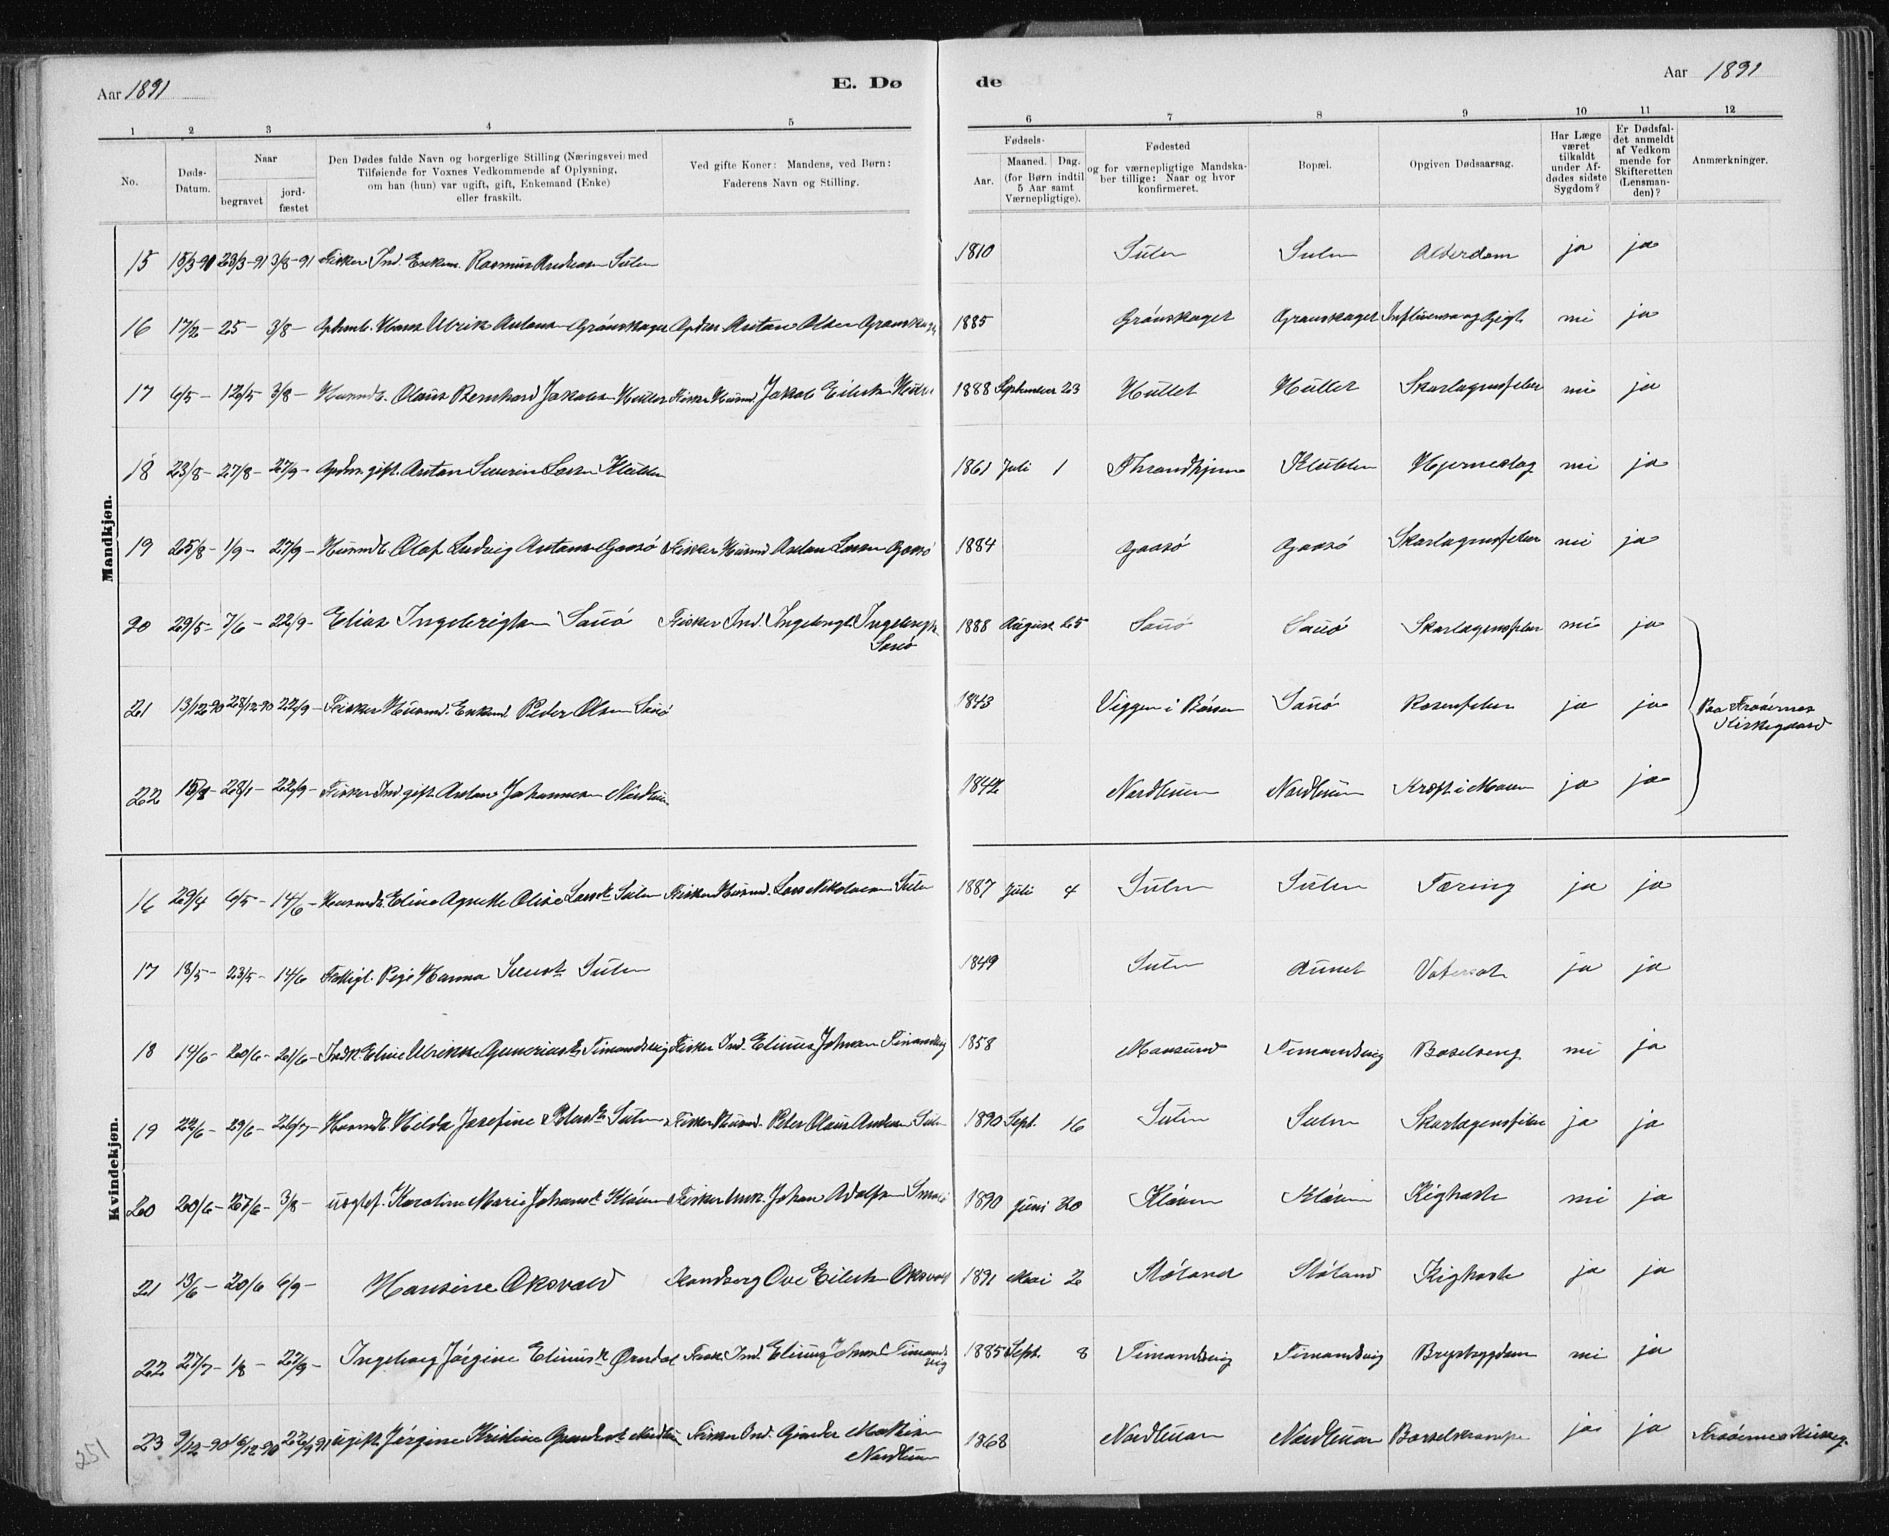 Aar 1891
E. Dø
de
Aar 1891
1 2 3 4 5 6 7 8 9 10 11 12
No.
Døds-
Datum.
Naar
begravet
jord-
fæstet
Den Dødes fulde Navn og borgerlige Stilling (Næringsvei) med
Tilføiende for Voxnes Vedkommende af Oplysning,
om han (hun) var ugift, gift, Enkemand (Enke)
eller fraskilt.
Ved gifte Koner: Mandens, ved Børn:
Faderens Navn og Stilling.
Fødsels-
Aar.
Maaned. Dag.
(for Børn indtil
5 Aar samt
Værnepligtige).
Fødested
og for værnepligtige Mandska-
ber tillige: Naar og hvor
konfirmeret.
Bopæl.
Opgiven Dødsaarsag.
Har Læge
været
tilkaldt
under Af-
dødes sidste
Sygdom?
Er Dødsfal-
det anmeldt
af Vedkom
mende for
Skifteretten
(Lensman-
den)?
Anmærkninger.
Mandkjøn.
15 15/3-91 23/3-91 3/8-91 Fisker Ind. Enkem. Rasmus Andreasen Sulen 1810 Sulen Sulen Alderdom ja ja
16 17/2- 25- 3/8- Hans Ulrik Antons. Grønskaget Anton Olsen Grønskaget 1885 Grønskaget Grønskaget Influensa og Gigt nei ja
17 6/5- 12/5 3/8- Husmdb. Olaus Bernhard Jakobsen Hullet Fisker Husmd Jakob Eilertsen Hullet 1888 September 23 Hullet Hullet Skarlagensfeber nei ja
18 23/8- 27/8- 27/9- gift. Anton Severin Larsen Klubben 1861 Juli 1 Throndhjem Klubben Hjerneslag nei ja
19 25/8- 1/9- 27/9- Husmdb. Olaf Ludvig Antons. Gaasø Fisker Husmd Anton Larsen Gaasø 1884 Gaasø Gaasø Skarlagensfeber nei ja
20 29/5- 7/6- 22/9- Elias Ingebrigtsen Sauø Fisker Ind. Ingebrigt Ingebrigts.
Sauø 1888 August 25 Sauø Sauø Skarlagensfeber nei ja
21 13/12-90 28/12-90 22/9- Fisker Husmd. Enkemd Peder Olsen Sauø 1843 Viggen i Børsen Sauø Rosenfeber ja ja Paa Frøøernes
Kirkegaard
22 28/1- 22/9- Fisker Ind gift. Anton Johannesen Nordhuen Nordhuen Nordhuen Kræft i Maven ja ja
Kvindekjøn.
16 29/4 6/5- 14/6- Husmdb. Eline Agnette Olise Larsdt. Sulen Fisker Husmd. Lars Nikolaisen Sulen 1887 Juli 4 Sulen Sulen Tæring ja ja
17 18/5- 23/5- 14/6 Fattigl. Pige Hanna Sulen 1849 Sulen Aunet Vatersot ja ja
18 14/6- 20/6- 21/6- Indk. Eline Ulrikke Guneriusdt. Timandsvig Fisker Ind. Elinus Johnsen Timandsvig 1858 Mausund Timandsvig Barselseng nei ja
19 22/6- 29/6- 26/7- Husmdb. Hilda Josefine Petersdt. Sulen Fisker Husmd. Peter Olaus Andreas. Sulen 1890 Sept. 16 Sulen Sulen Skarlagensfeber ja ja
20 20/6- 27/6- 3/8- uægtef. Karoline Marie Johansdt. Kløven Fisker Unk. Johan Adolfsen 1890 Juni 20 Kløven Kløven Kighoste nei ja
21 13/6- 20/6 6/9- Hansine Oksvold Strandberg Ove Eilertsen Oksvold 1891 Mai 2 Støland Støland Kighoste ja ja
22 27/7- 1/8- 27/9- Ingeborg Jørgine Elinusdt. Ørndal Fisk. Ind. Elinus Johnsen Timands
vig 1885 Sept. 8 Timandsvig Timandsvig Brystsygdom nei ja
23 9/12-90 16/12-90 22/9-91 ugift Jørgine Kristine Nordhuen Fisker Ind. Gunder Mathisen
Nordhuen 1868 Nordhuen Nordhuen Barselkrampe ja ja Frøøernes Kirkeg.
251